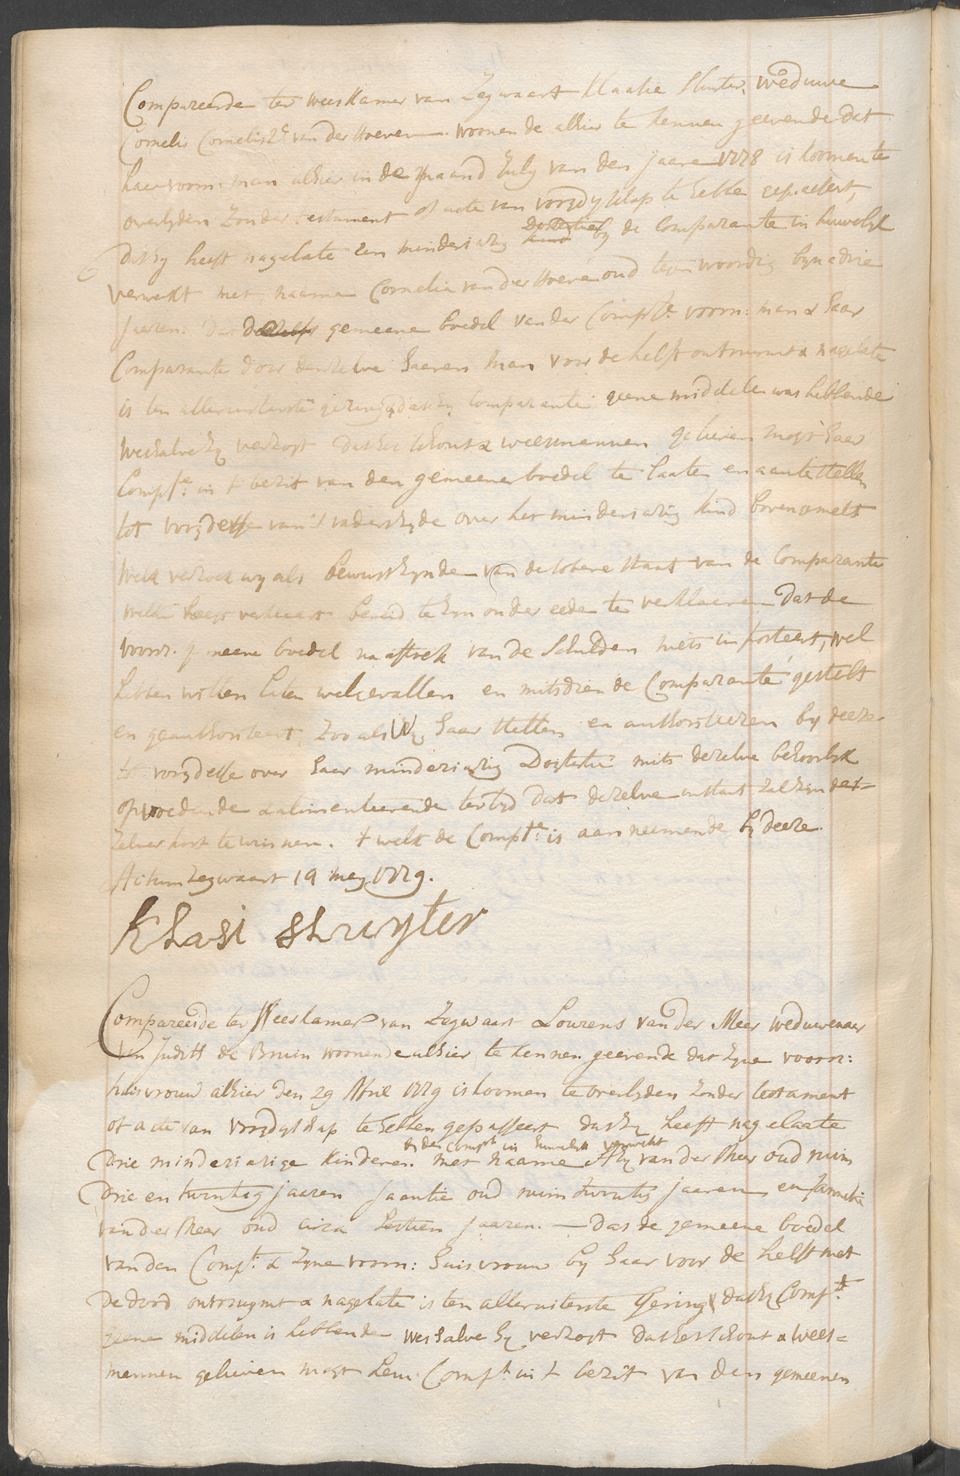 Compareerde ter weeskamer van Zegwaart Klaasie Sluiter, weduwe
Cornelis Cornelisz van der Hoeven woonende alhier te kennen geevende dat
haar voorn: man alhier in de maand July van den jaare 1778 is koomen te
overlyden zonder testament of acte van voogdyschap te hebbe gepasseert,
dat hy heeft nagelate een minderjarig Dogtertie by de Comparante in huwelyk
verwekt met naame Cornelia van der Hoeve oud tegenwoordig byna drie
jaaren: dat de gemeene boedel van der Compte. voorn: man & haar
Comparante door denzelve haaren man voor de helft ontruimt & nagelate
is ten alleruiterste gering, dat zy Comparante geene middele was hebbende
weshalve zy verzogt dat het Schout & weesmannen gelieven mogt haar
Compte. in 't bezit van den gemeene boedel te laaten en aan te stellen
tot voogdesse van 's vaders zyde over het minderjarig kind bovengemelt
welk verzoek wy als bewust zynde van de sobere staat van de Comparante
welke heeft verklaart bereid te zyn onder eede te verklaaren dat de
voorz. gemeene boedel na aftrek van de schulden niets importeert, wel
hebben willen laten welgevallen en mitsdien de Comparante gestelt
en geauthoriseert, zoo als Wy haar stellen en authoriseeren by deeze
tot voogdesse over haar minderjarig Dogtertie mits dezelve behoorlyk
opvoedende & alimenteerende ter tyd dat dezelve in staat zal zyn des-
zelver kost te winnen. 't welk de Compte. is aanneemende by deeze.
Actum Zegwaart 19 mey 1779.
Klasi Sluyter
Compareerde ter Weeskamer van Zegwaart Lourens van der Meer weduwenaar
van Judith de Bruin woonende alhier te kennen geevende dat zyne voorn:
huisvrouw alhier den 29 April 1779 is koomen te overlyden zonder testament
of acte van voogdyschap te hebben gepasseert dat hy heeft nagelaate
by den Compt. in huwelyk verwekt
Drie minderjarige kinderen met naame Ary van der Meer oud ruim
drie en twintig jaaren Jaantie oud ruim twintig jaaren en
van der Meer oud circa sestien jaaren. — Dat de gemeene boedel
van den Compt. & zyne voorn: huisvrouw by haar voor de helft met
de dood ontruymt & nagelate is ten alleruiterste gering, dat hy Compt.
geene middelen is hebbende weshalve hy verzogt dat het Schout & wees=
mannen gelieven mogt hem Compt. in 't bezit van den gemeenen